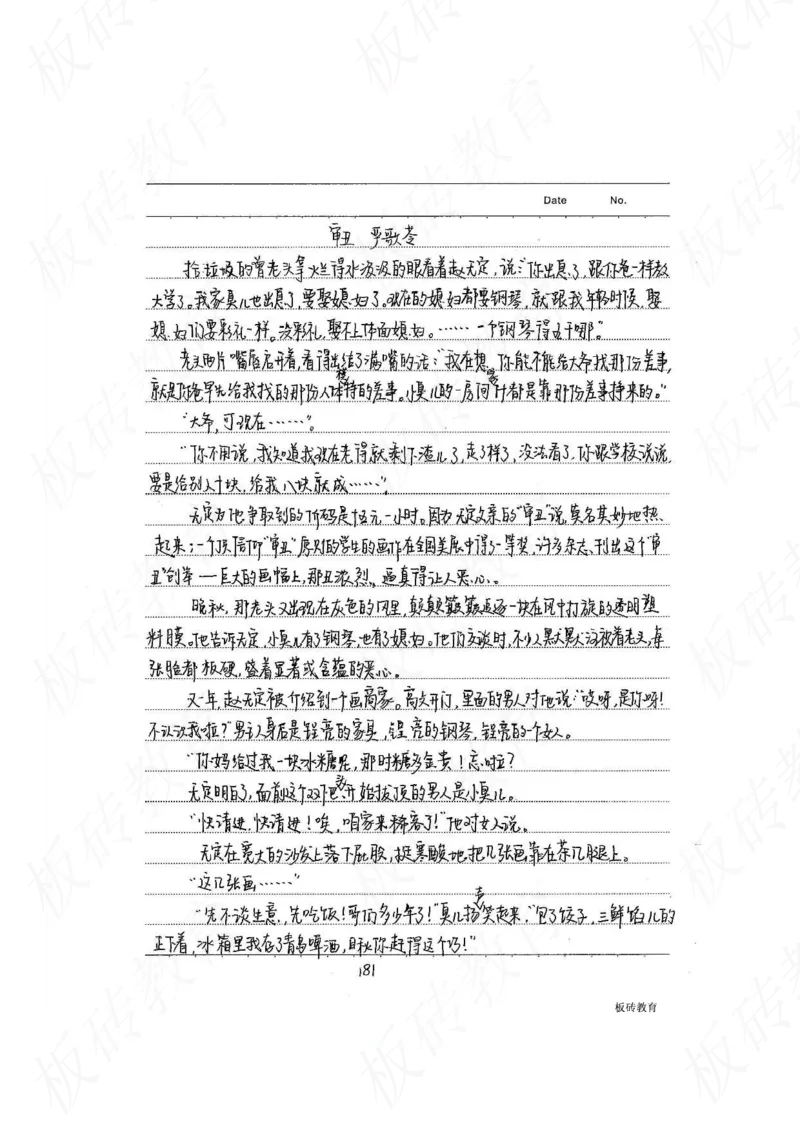 Date No.
审丑 严歌苓
拾垃圾的曾老头拿烂得水汲汲的眼看着赵无定,说:“你出息了,跟你爸一样教
大学了。我家臭儿也出息了,要娶媳妇了。现在的媳妇都要钢琴,就跟我年轻时候,娶
媳妇们要彩礼一样。没彩礼,娶不上体面媳妇。……一个钢琴得五千哪。”
老头两片嘴唇启开着,看得出结了满嘴的话:“我在想,你能不能给大爷找那份差事,
就是你爸早先给我找的那份人体模特的差事。小臭儿的一房间家什都是靠那份差事挣来的。”
“大爷,可现在……”。
“你不用说,我知道我现在老得就剩下渣儿了,走了样了,没法看了。你跟学校说说,
要是给别人十块,给我八块就成……”。
无定为他争取到的价码是十五元一小时。因为无定父亲的“审丑”说,莫名其妙地热
起来:一个顶信仰“审丑”原则的学生的画作在全国美展中得了一等奖,许多杂志刊出这个“审
丑”创举——巨大的画幅上,那丑浓烈、逼真得让人恶心。
晚秋,那老头又出现在灰色的风里,颠颠簸簸追逐一块在风中打旋的透明塑
料膜。他告诉无定,小臭儿有了钢琴,也有了媳妇。他们交谈时,不少人默默注视着老头,每
张脸都板硬,盛着显著或含蕴的恶心。
又一年,赵无定被介绍到一个画商家。高大开门,里面的男人对他说:“哎呀,是你呀!
不认识我啦?”男主人身后是锃亮的家具,锃亮的钢琴,锃亮的一个女人。
“你妈给过我一块冰糖呢,那时糖多金贵!忘啦?
无定明白了,面前这个双下巴、头开始拔顶的男人是小臭儿。
“快请进,快请进!唉,咱家来稀客了!”他对女人说。
无定在宽大的沙发上落下屁股,挺寒酸地把几张画靠在茶几腿上。
“这几张画……”
“先不谈生意,先吃饭!哥们多少年了!”臭儿扬声笑起来,“包了饺子,三鲜馅儿的
正下着,冰箱里我存了青岛啤酒,目秋你赶得这个巧!”
181
板砖教育